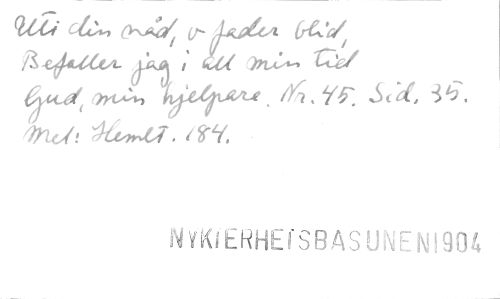 Uti din nåd, o fader blid,
Befaller jag i all min tid
Gud, min hjelpare. Nr. 45. Sid. 35.
Mel: Hemlt. 184.
NYKTERHETSBASUNEN 1904